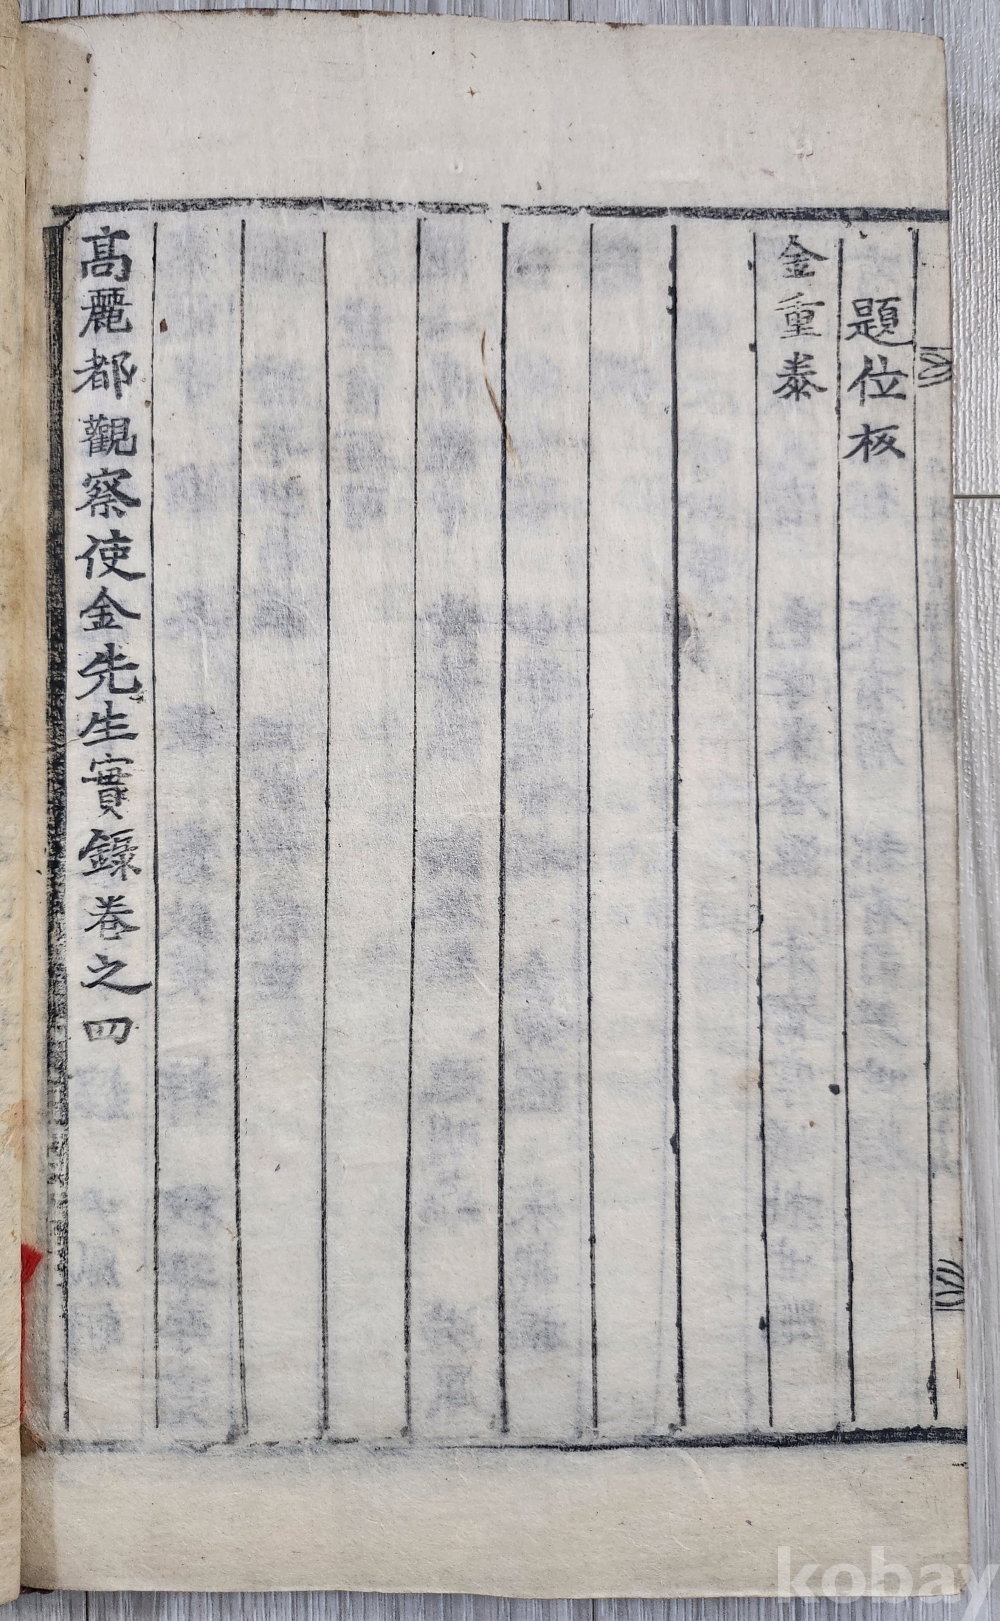 題位板
金重泰
高麗都觀察使金先生實錄卷之四
kobay